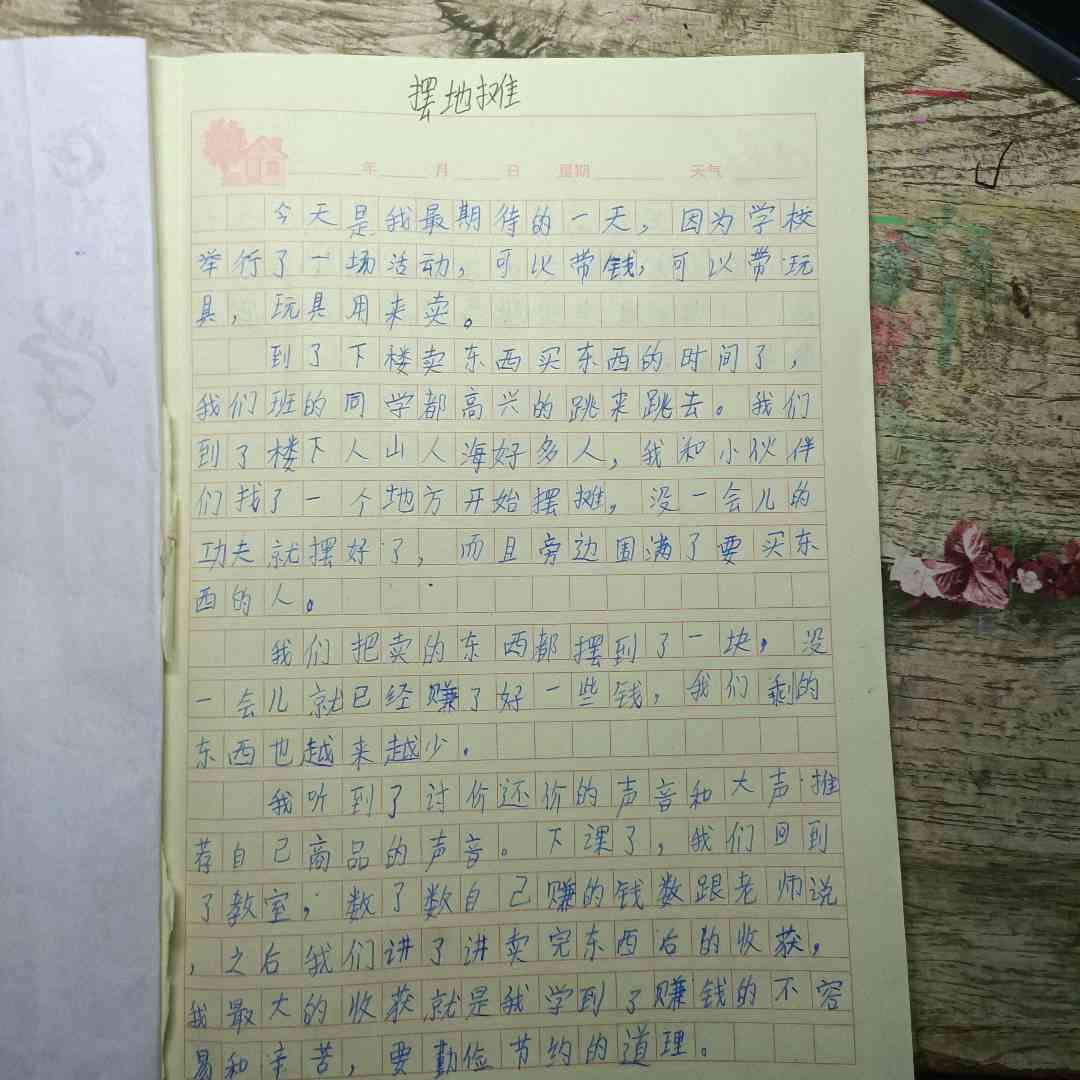 摆地摊
年 月 日 星期 天气
今天是我最期待的一天，因为学校
举行了一场活动，可以带钱，可以带玩
具，玩具用来卖。
到了下楼卖东西买东西的时间了，
我们班的同学都高兴的跳来跳去。我们
到了楼下人山人海好多人，我和小伙伴
们找了一个地方开始摆摊，没一会儿的
功夫就摆好了，而且旁边围满了要买东
西的人。
我们把卖的东西都摆到了一块，没
一会儿就已经赚了好一些钱，我们剩的
东西也越来越少。
我听到了讨价还价的声音和大声推
荐自己商品的声音。下课了，我们回到
了教室，数了数自己赚的钱数跟老师说
，之后我们讲了讲卖完东西后的收获，
我最大的收获就是我学到了赚钱的不容
易和辛苦，要勤俭节约的道理。